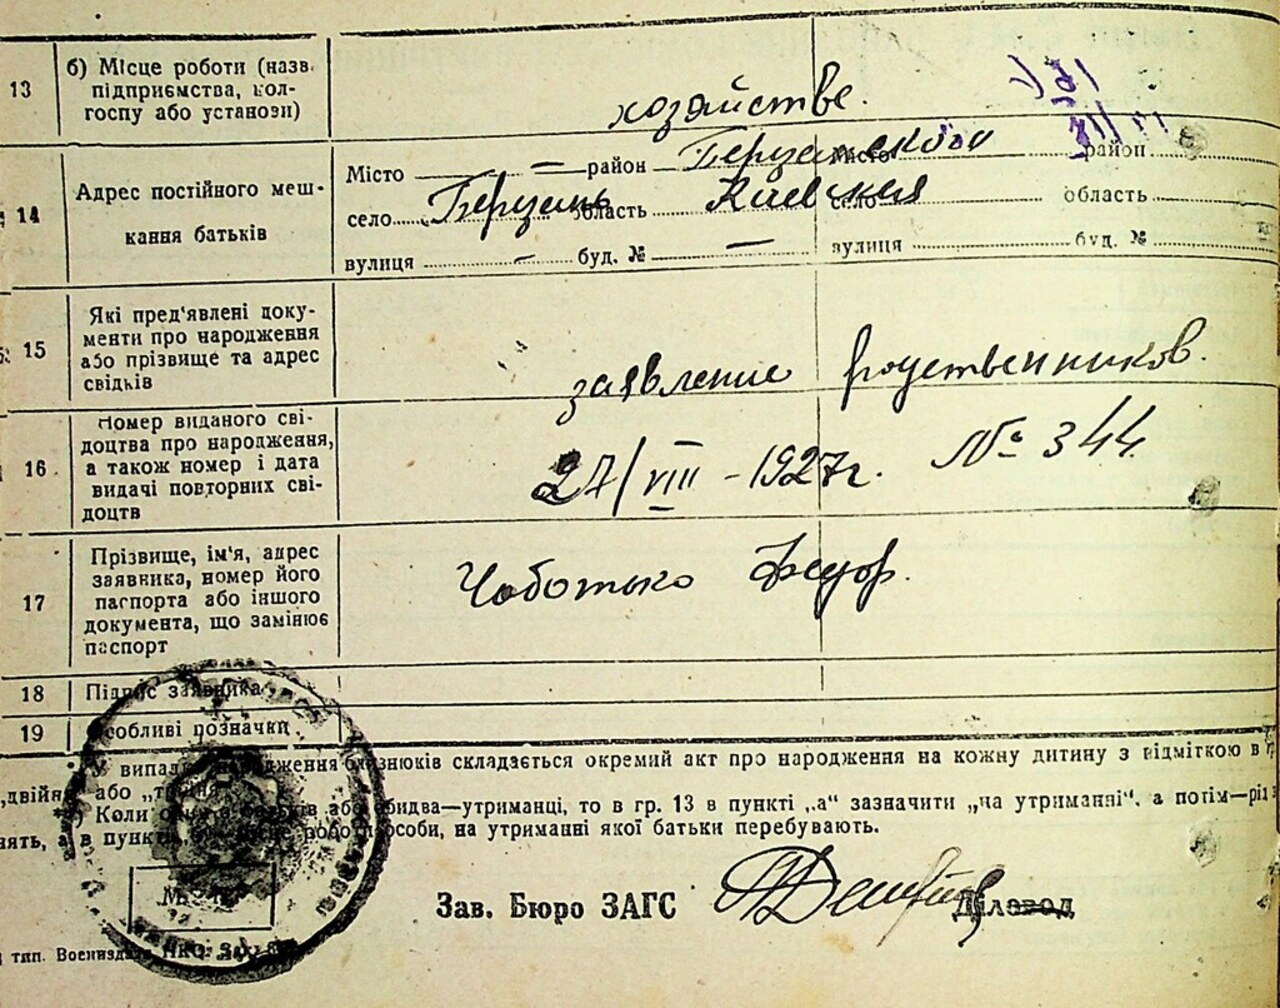 13
б) Місце роботи (назв.
підприємства, кол-
госпу або установи)
хозяйстве.
14
Адрес постійного меш-
кання батьків
Місто — район
Місто район
село область Киевская
село область
вулиця — буд. № —
вулиця буд. №
15
Які пред'явлені доку-
менти про народження
або прізвище та адрес
свідків
заявление родственников.
16
Номер виданого сві-
доцтва про народження,
а також номер і дата
видачі повторних сві-
доцтв
27/VIII - 1927г. № 344
17
Прізвище, ім'я, адрес
заявника, номер його
паспорта або іншого
документа, що замінює
паспорт
Чоботько Федор.
18
Підпис заявника
19
Особливі позначки
У випадку народження близнюків складається окремий акт про народження на кожну дитину з відміткою в
„двійня або „трійня
Коли один з батьків або обидва—утриманці, то в гр. 13 в пункті „а" зазначити „на утриманні", а потім—рід
нять, а в пункті роботи особи, на утриманні якої батьки перебувають.
Зав. Бюро ЗАГС
Діловод
М.
тип. Воениздата НКО.